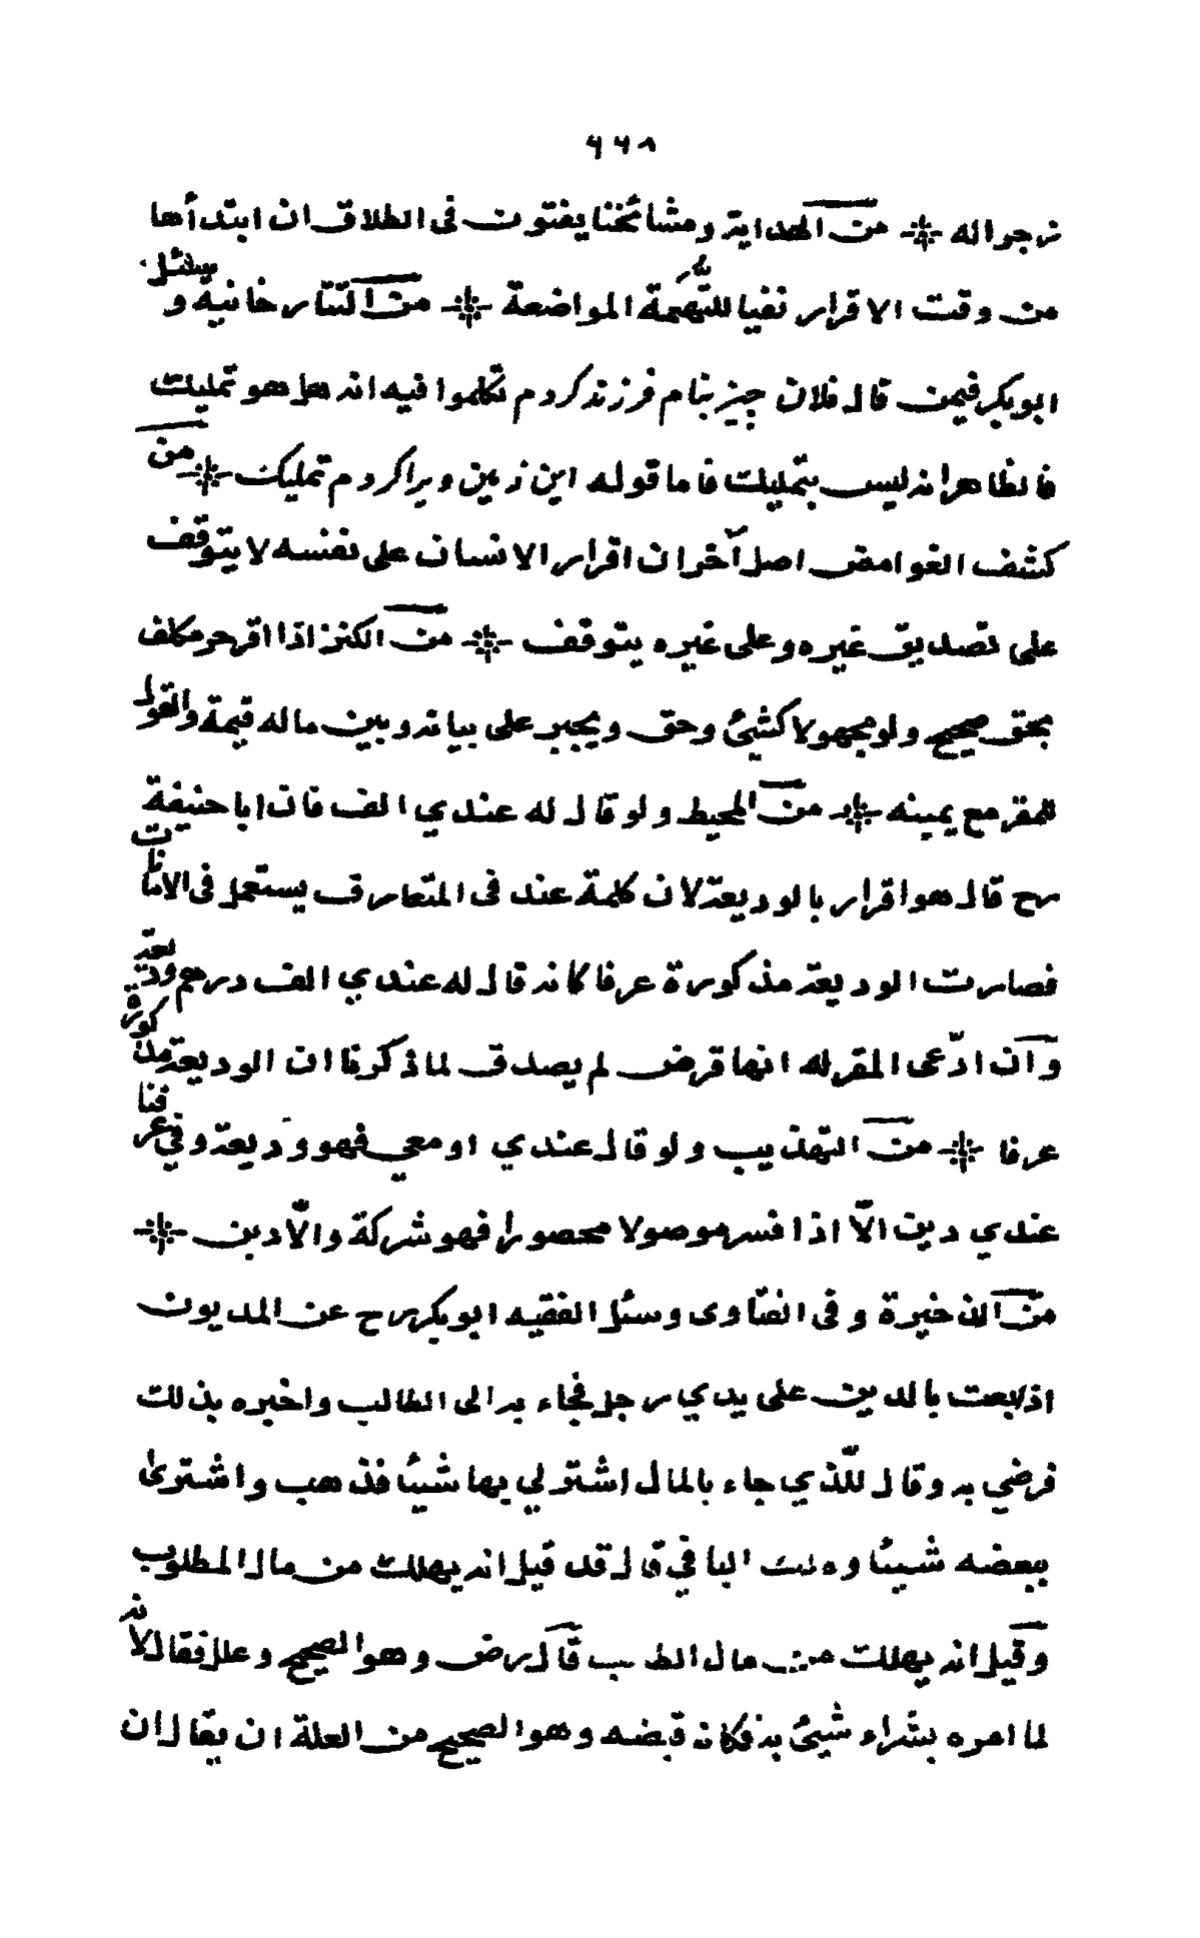 ٦٦٨
زجرا له ※ من الهداية ومشائخنا يفتون فى الطلاق ان ابتدأها
من وقت الاقرار نفيا للتهمة المواضعة ※ من التتار خانية و سئل
ابو بكر فيمن قال فلان چيز بنام فرزند كردم تكلموا فيه انه هل هو تمليك
فالظاهر انه ليس بتمليك فاما قوله اين زمين ويرا كردم تمليك ※ من
كشف الغوامض اصل آخر ان اقرار الانسان على نفسه لا يتوقف
على تصديق غيره وعلى غيره يتوقف ※ من الكنز اذا اقر حر مكلف
بحق صحيح ولو مجهولا كشئ وحق ويجبر على بيانه وبين ماله قيمة والقول
للمقر مع يمينه ※ من المحيط ولو قال له عندي الف فان ابا حنيفة
رح قال هو اقرار بالوديعة لان كلمة عند فى المتعارف يستعمل فى الامانات
فصارت الوديعة مذكورة عرفا كانه قال له عندي الف درهم وديعة
وان ادّعى المقر له انها قرض لم يصدق لما ذكرنا ان الوديعة مذكورة
عرفا ※ من التهذيب ولو قال عندي او معي فهو وديعة وفي عرفنا
عندي دين الّا اذا فسر موصولا محصورا فهو شركة والّا دين ※
من الذخيرة وفى الفتاوى وسئل الفقيه ابو بكر رح عن المديون
اذا بعث بالدين على يدي رجل فجاء به الى الطالب واخبره بذلك
فرضي به وقال للّذي جاء بالمال اشتر لي بها شيئا فذهب واشترى
ببعضه شيئا وهلك الباقي قال قد قيل انه يهلك من مال المطلوب
وقيل انه يهلك من مال الطالب قال رض وهو الصحيح وعلل فقال لانه
لما امره بشراء شيئ به فكانه قبضه وهو الصحيح من العلة ان يقال ان